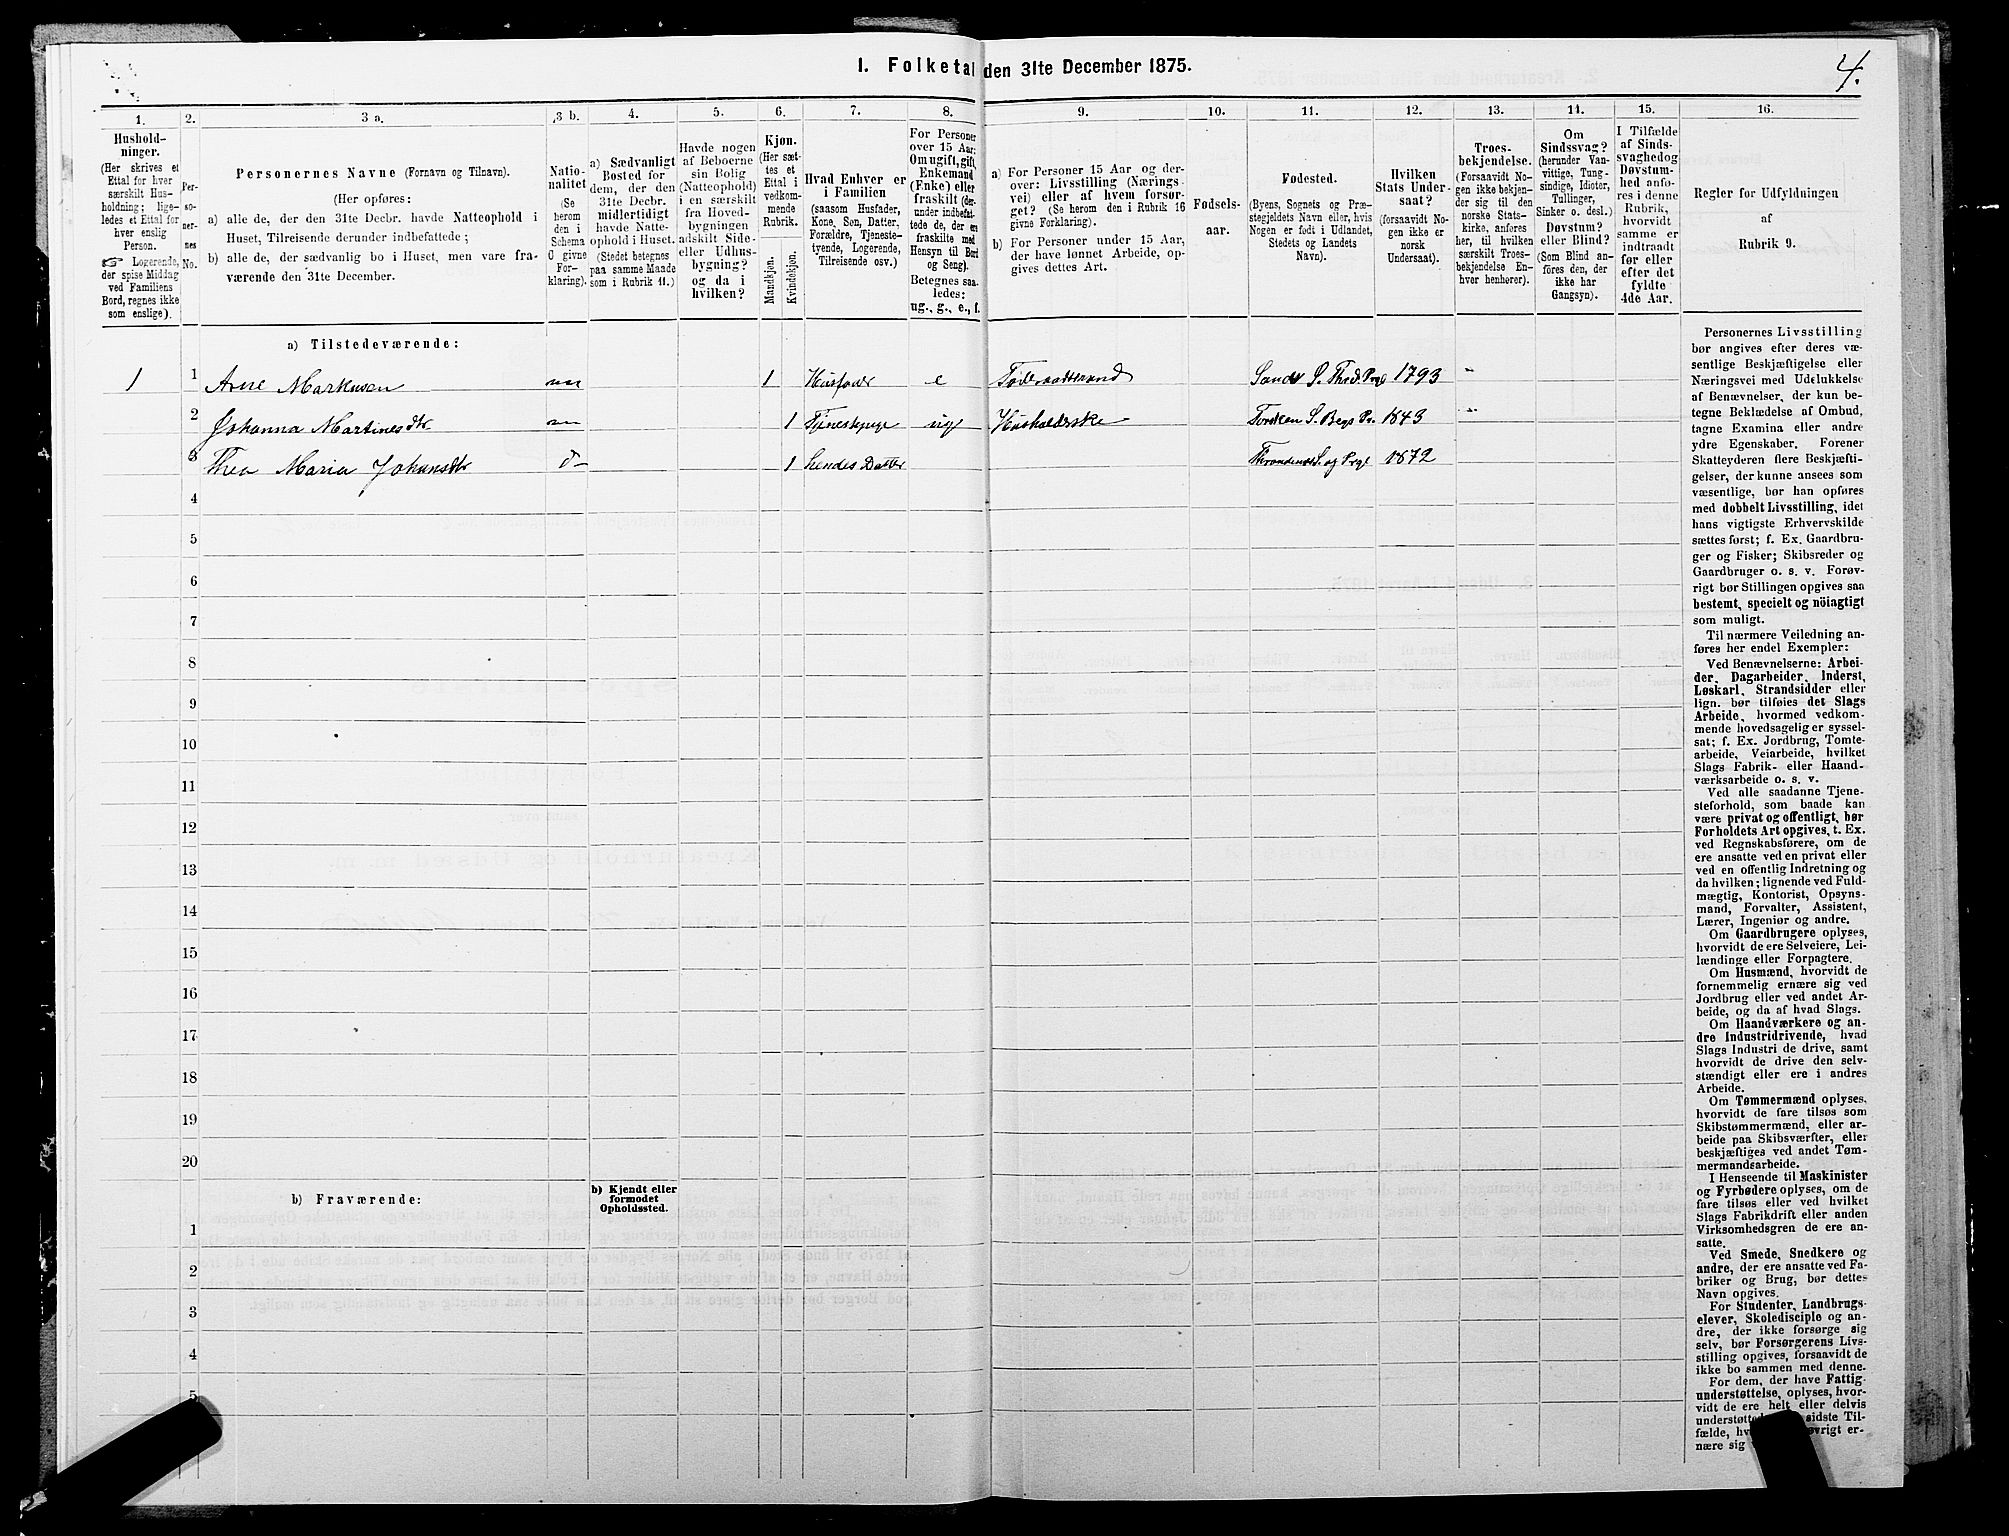 4.
I. Folketal den 31te December 1875.
1. 2. 3 a. 3 b. 4. 5. 6. 7. 8. 9. 10. 11. 12. 13. 14. 15. 16.
Hushold-
ninger.
(Her skrives et
Ettal for hver
særskilt Hus-
holdning; lige-
ledes et Ettal for
hver enslig
Person.
☞ Logerende,
der spise Middag
ved Familiens
Bord, regnes ikke
som enslige).
Per-
so-
ner-
nes
No.
Personernes Navne (Fornavn og Tilnavn).
(Her opføres:
a) alle de, der den 31te Decbr. havde Natteophold i
Huset, Tilreisende derunder indbefattede;
b) alle de, der sædvanlig bo i Huset, men vare fra-
værende den 31te December.
Natio-
nalitet
(Se
herom
den i
Schema
O givne
For-
klaring).
a) Sædvanligt
Bosted for
dem, der den
31te Decbr.
midlertidigt
havde Natte-
ophold i Huset.
(Stedet betegnes
paa samme Maade
som i Rubrik 11.)
Havde nogen
af Beboerne
sin Bolig
(Natteophold)
i en særskilt
fra Hoved-
bygningen
adskilt Side-
eller Udhus-
bygning?
og da i
hvilken?
Kjøn.
(Her sæt-
tes et
Ettal i
vedkom-
mende
Rubrik.
Mandkjøn.
Kvindekjøn.
Hvad Enhver er
i Familien
(saasom Husfader,
Kone, Søn, Datter,
Forældre, Tjeneste-
tyende, Logerende,
Tilreisende osv.)
For Personer
over 15 Aar:
Om ugift, gift,
Enkemand
(Enke) eller
fraskilt (der-
under indbefat-
tede de, der ere
fraskilte med
Hensyn til Bord
og Seng).
Betegnes saa-
ledes:
ug., g., e., f.
a) For Personer 15 Aar og der-
over: Livsstilling (Nærings-
vei) eller af hvem forsør-
get? (Se herom den i Rubrik 16
givne Forklaring).
b) For Personer under 15 Aar,
der have lønnet Arbeide, op-
gives dettes Art.
Fødsels-
aar.
Fødested.
(Byens, Sognets og Præ-
stegjeldets Navn eller, hvis
Nogen er født i Udlandet,
Stedets og Landets
Navn).
Hvilken
Stats Under-
saat?
(forsaavidt No-
gen ikke er
norsk
Undersaat).
Troes-
bekjendelse.
(Forsaavidt No-
gen ikke bekjen-
der sig til den
norske Stats-
kirke, anføres
her, til hvilken
særskilt Troes-
bekjendelse En-
hver henhører).
Om
Sindssvag?
(herunder Van-
vittige, Tung-
sindige, Idioter,
Tullinger,
Sinker o. desl.)
Døvstum?
eller Blind?
(Som Blind an-
føres den, der
ikke har
Gangsyn).
I Tilfælde
af Sinds-
svaghed og
Døvstum-
hed anfø-
res i denne
Rubrik,
hvorvidt
samme er
indtraadt
før eller
efter det
fyldte
4de Aar.
Regler for Udfyldningen
af
Rubrik 9.
a) Tilstedeværende:
1 1 Arne Markusen 1 Husfader e 1793
2 Johanna Martinesdtr 1 ug Husholderske Torsken S. Bergs Pr. 1843
3 Thea Maria Johansdtr 1 hendes Datter Throndenæs S. og Prgl 1872
4
5
6
7
8
9
10
11
12
13
14
15
16
17
18
19
20
b) Fraværende:
b) Kjendt eller
formodet
Opholdssted.
1
2
3
4
5
Personernes Livsstilling
bør angives efter deres væ-
sentlige Beskjæftigelse eller
Næringsvei med Udelukkelse
af Benævnelser, der kun be-
tegne Beklædelse af Ombud,
tagne Examina eller andre
ydre Egenskaber. Forener
Skatteyderen flere Beskjæfti-
gelser, der kunne ansees som
væsentlige, bør han opføres
med dobbelt Livsstilling, idet
hans vigtigste Erhvervskilde
sættes først; f. Ex. Gaardbru-
ger og Fisker; Skibsreder og
Gaardbruger o. s. v. Forøv-
rigt bør Stillingen opgives saa
bestemt, specielt og nöiagtigt
som muligt.
Til nærmere Veiledning an-
føres her endel Exempler:
Ved Benævnelserne: Arbei-
der, Dagarbeider, Inderst,
Løskarl, Strandsidder eller
lign. bør tilføies det Slags
Arbeide, hvormed vedkom-
mende hovedsagelig er syssel-
sat; f. Ex. Jordbrug, Tomte-
arbeide, Veiarbeide, hvilket
Slags Fabrik- eller Haand-
værksarbeide o. s. v.
Ved alle saadanne Tjene-
steforhold, som baade kan
være privat og offentligt, bør
Forholdets Art opgives, t. Ex.
ved Regnskabsførere, om de
ere ansatte ved en privat eller
ved en offentlig Indretning og
da hvilken; lignende ved Fuld-
mægtig, Kontorist, Opsyns-
mand, Forvalter, Assistent,
Lærer, Ingeniør og andre.
Om Gaardbrugere oplyses,
hvorvidt de ere Selveiere, Lei-
lændinge eller Forpagtere.
Om Husmænd, hvorvidt de
fornemmelig ernære sig ved
Jordbrug eller ved andet Ar-
beide, og da af hvad Slags.
Om Haandværkere og an-
dre Industridrivende, hvad
Slags Industri de drive, samt
hvorvidt de drive den selv-
stændigt eller ere i andres
Arbeide.
Om Tømmermænd oplyses,
hvorvidt de fare tilsøs som
Skibstømmermænd, eller ar-
beide paa Skibsværfter, eller
beskjæftiges ved andet Tøm-
mermandsarbeide.
I Henseende til Maskinister
og Fyrbødere oplyses, om de
fare tilsøs eller ved hvilket
Slags Fabrikdrift eller anden
Virksomhedsgren de ere an-
satte.
Ved Smede, Snedkere og
andre, der ere ansatte ved Fa-
briker og Brug, bør dettes
Navn opgives.
For Studenter, Landbrugs-
elever, Skoledisciple og an-
dre, der ikke forsørge sig
selv, bør Forsørgerens Livs-
stilling opgives, forsaavidt de
ikke bo sammen med denne.
For dem, der have Fattig-
understøttelse, oplyses, hvor-
vidt de ere helt eller delvis
sidste Til-
fælde, øvrigt er-
nære sig